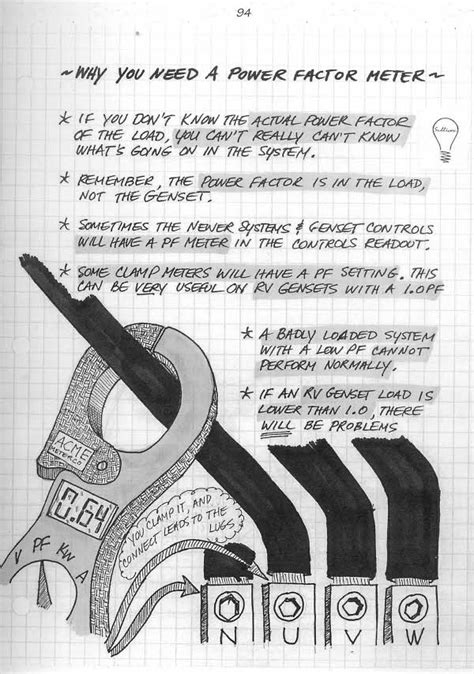 94
~ WHY YOU NEED A POWER FACTOR METER ~
* IF YOU DON'T KNOW THE ACTUAL POWER FACTOR
OF THE LOAD, YOU CAN'T REALLY CAN'T KNOW
WHAT'S GOING ON IN THE SYSTEM.
* REMEMBER, THE POWER FACTOR IS IN THE LOAD,
NOT THE GENSET.
* SOMETIMES THE NEWER SYSTEMS & GENSET CONTROLS
WILL HAVE A PF METER IN THE CONTROLS READOUT.
* SOME CLAMP METERS WILL HAVE A PF SETTING. THIS
CAN BE VERY USEFUL ON RV GENSETS WITH A 1.0PF
* A BADLY LOADED SYSTEM
WITH A LOW PF CANNOT
PERFORM NORMALLY.
* IF AN RV GENSET LOAD IS
LOWER THAN 1.0, THERE
WILL BE PROBLEMS
ACME
METER CO
0.64
V PF KW A
YOU CLAMP IT, AND
CONNECT LEADS TO THE
LUGS
N U V W